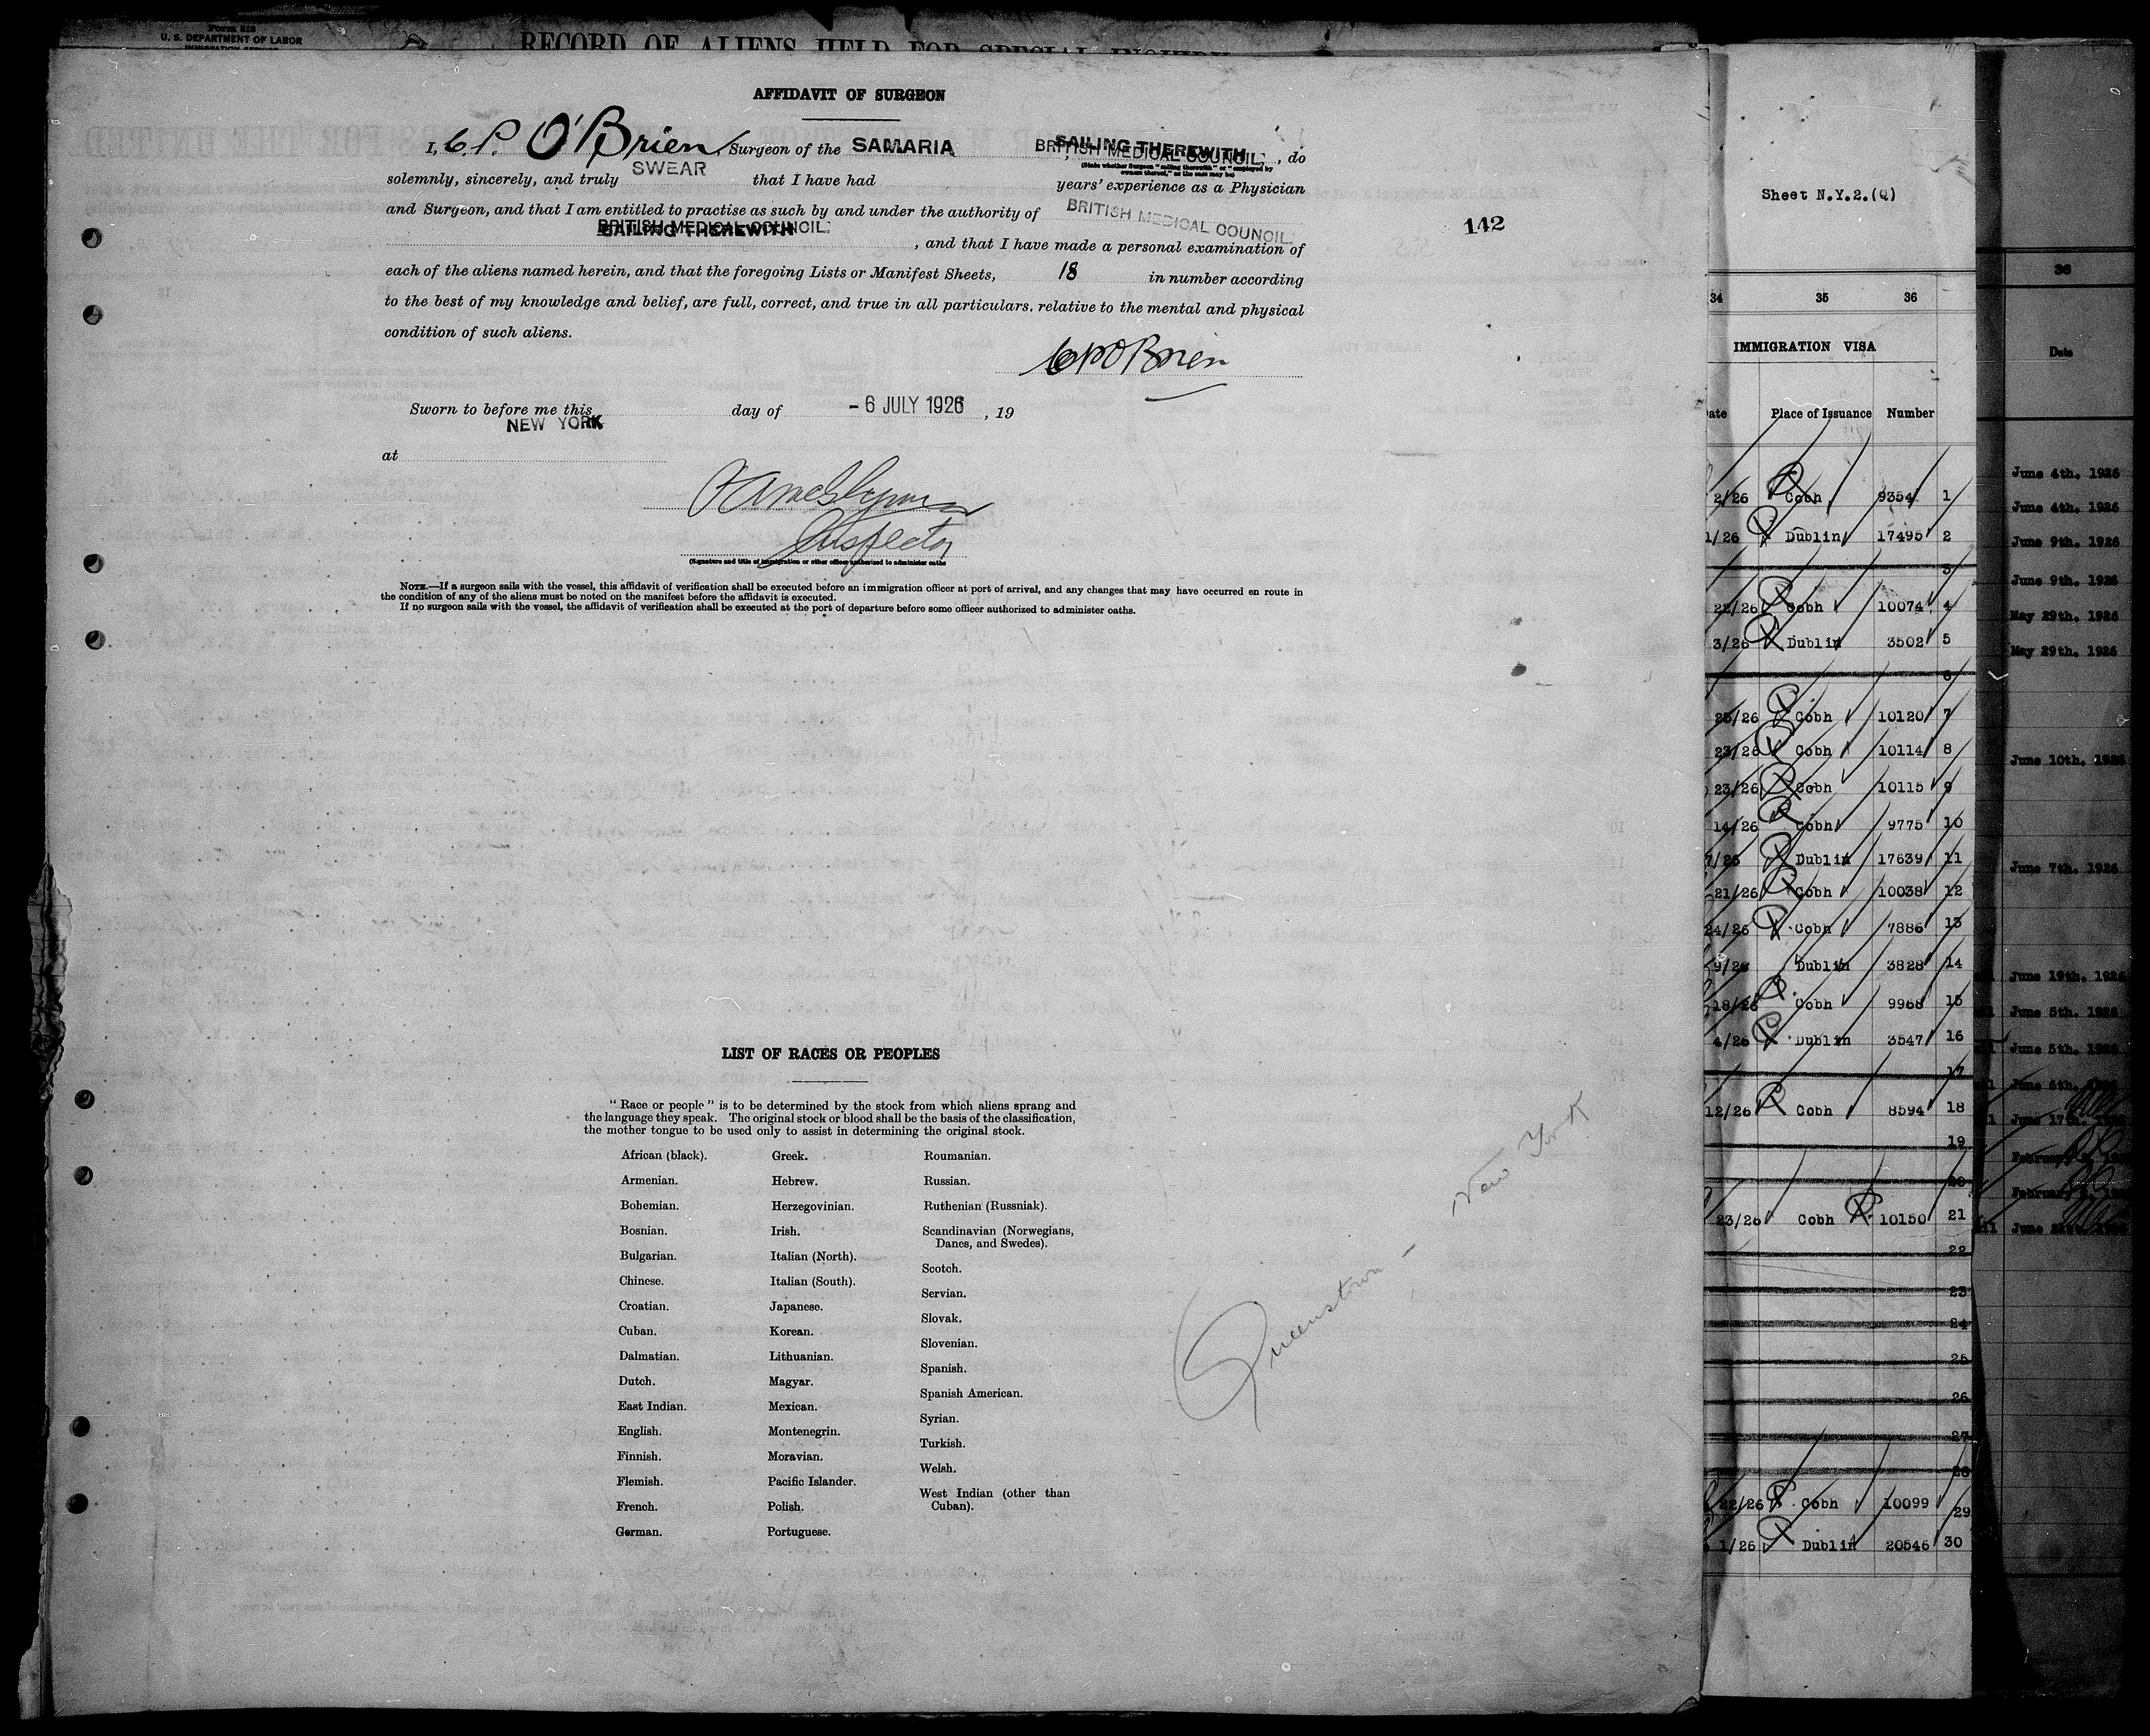 Form 518
U. S. DEPARTMENT OF LABOR
IMMIGRATION SERVICE
RECORD OF ALIENS HELD FOR SPECIAL INQUIRY
AFFIDAVIT OF SURGEON
I, C. P. O'Brien, Surgeon of the SAMARIA SAILING THEREWITH BRITISH MEDICAL COUNCIL, do
(State whether Surgeon "sailing therewith" or "employed by
owners thereof," as the case may be)
solemnly, sincerely, and truly SWEAR that I have had years' experience as a Physician
and Surgeon, and that I am entitled to practise as such by and under the authority of BRITISH MEDICAL COUNCIL.
BRITISH MEDICAL COUNCIL. SAILING THEREWITH, and that I have made a personal examination of
142
each of the aliens named herein, and that the foregoing Lists or Manifest Sheets, 18 in number according
to the best of my knowledge and belief, are full, correct, and true in all particulars, relative to the mental and physical
condition of such aliens.
C P O'Brien
Sworn to before me this day of - 6 JULY 1926, 19
NEW YORK
at
Inspector
(Signature and title of immigration or other officer authorized to administer oaths
NOTE.—If a surgeon sails with the vessel, this affidavit of verification shall be executed before an immigration officer at port of arrival, and any changes that may have occurred en route in
the condition of any of the aliens must be noted on the manifest before the affidavit is executed.
If no surgeon sails with the vessel, the affidavit of verification shall be executed at the port of departure before some officer authorized to administer oaths.
LIST OF RACES OR PEOPLES
"Race or people" is to be determined by the stock from which aliens sprang and
the language they speak. The original stock or blood shall be the basis of the classification,
the mother tongue to be used only to assist in determining the original stock.
African (black).
Armenian.
Bohemian.
Bosnian.
Bulgarian.
Chinese.
Croatian.
Cuban.
Dalmatian.
Dutch.
East Indian.
English.
Finnish.
Flemish.
French.
German.
Greek.
Hebrew.
Herzegovinian.
Irish.
Italian (North).
Italian (South).
Japanese.
Korean.
Lithuanian.
Magyar.
Mexican.
Montenegrin.
Moravian.
Pacific Islander.
Polish.
Portuguese.
Roumanian.
Russian.
Ruthenian (Russniak).
Scandinavian (Norwegians,
Danes, and Swedes).
Scotch.
Servian.
Slovak.
Slovenian.
Spanish.
Spanish American.
Syrian.
Turkish.
Welsh.
West Indian (other than
Cuban).
Queenstown - New York
Sheet N.Y.2.(Q)
34 35 36
IMMIGRATION VISA
ate Place of Issuance Number
2/26 Cobh 9354 1
1/26 Dublin 17495 2
3
22/26 Cobh 10074 4
3/26 Dublin 3502 5
6
25/26 Cobh 10120 7
23/26 Cobh 10114 8
23/26 Cobh 10115 9
14/26 Cobh 9775 10
7/26 Dublin 17639 11
21/26 Cobh 10038 12
24/26 Cobh 7886 13
9/26 Dublin 3828 14
18/26 Cobh 9968 15
4/26 Dublin 3547 16
17
12/26 Cobh 8594 18
19
20
23/26 Cobh 10150 21
22
23
24
25
26
27
28
22/26 Cobh 10099 29
1/26 Dublin 20546 30
36
Date
June 4th. 1926
June 4th. 1926
June 9th. 1926
June 9th. 1926
May 29th. 1926
May 29th. 1926
June 10th. 1926
June 7th. 1926
June 19th. 1926
June 5th. 1926
June 5th. 1926
June 17th.
February
February
June 21st. 1926